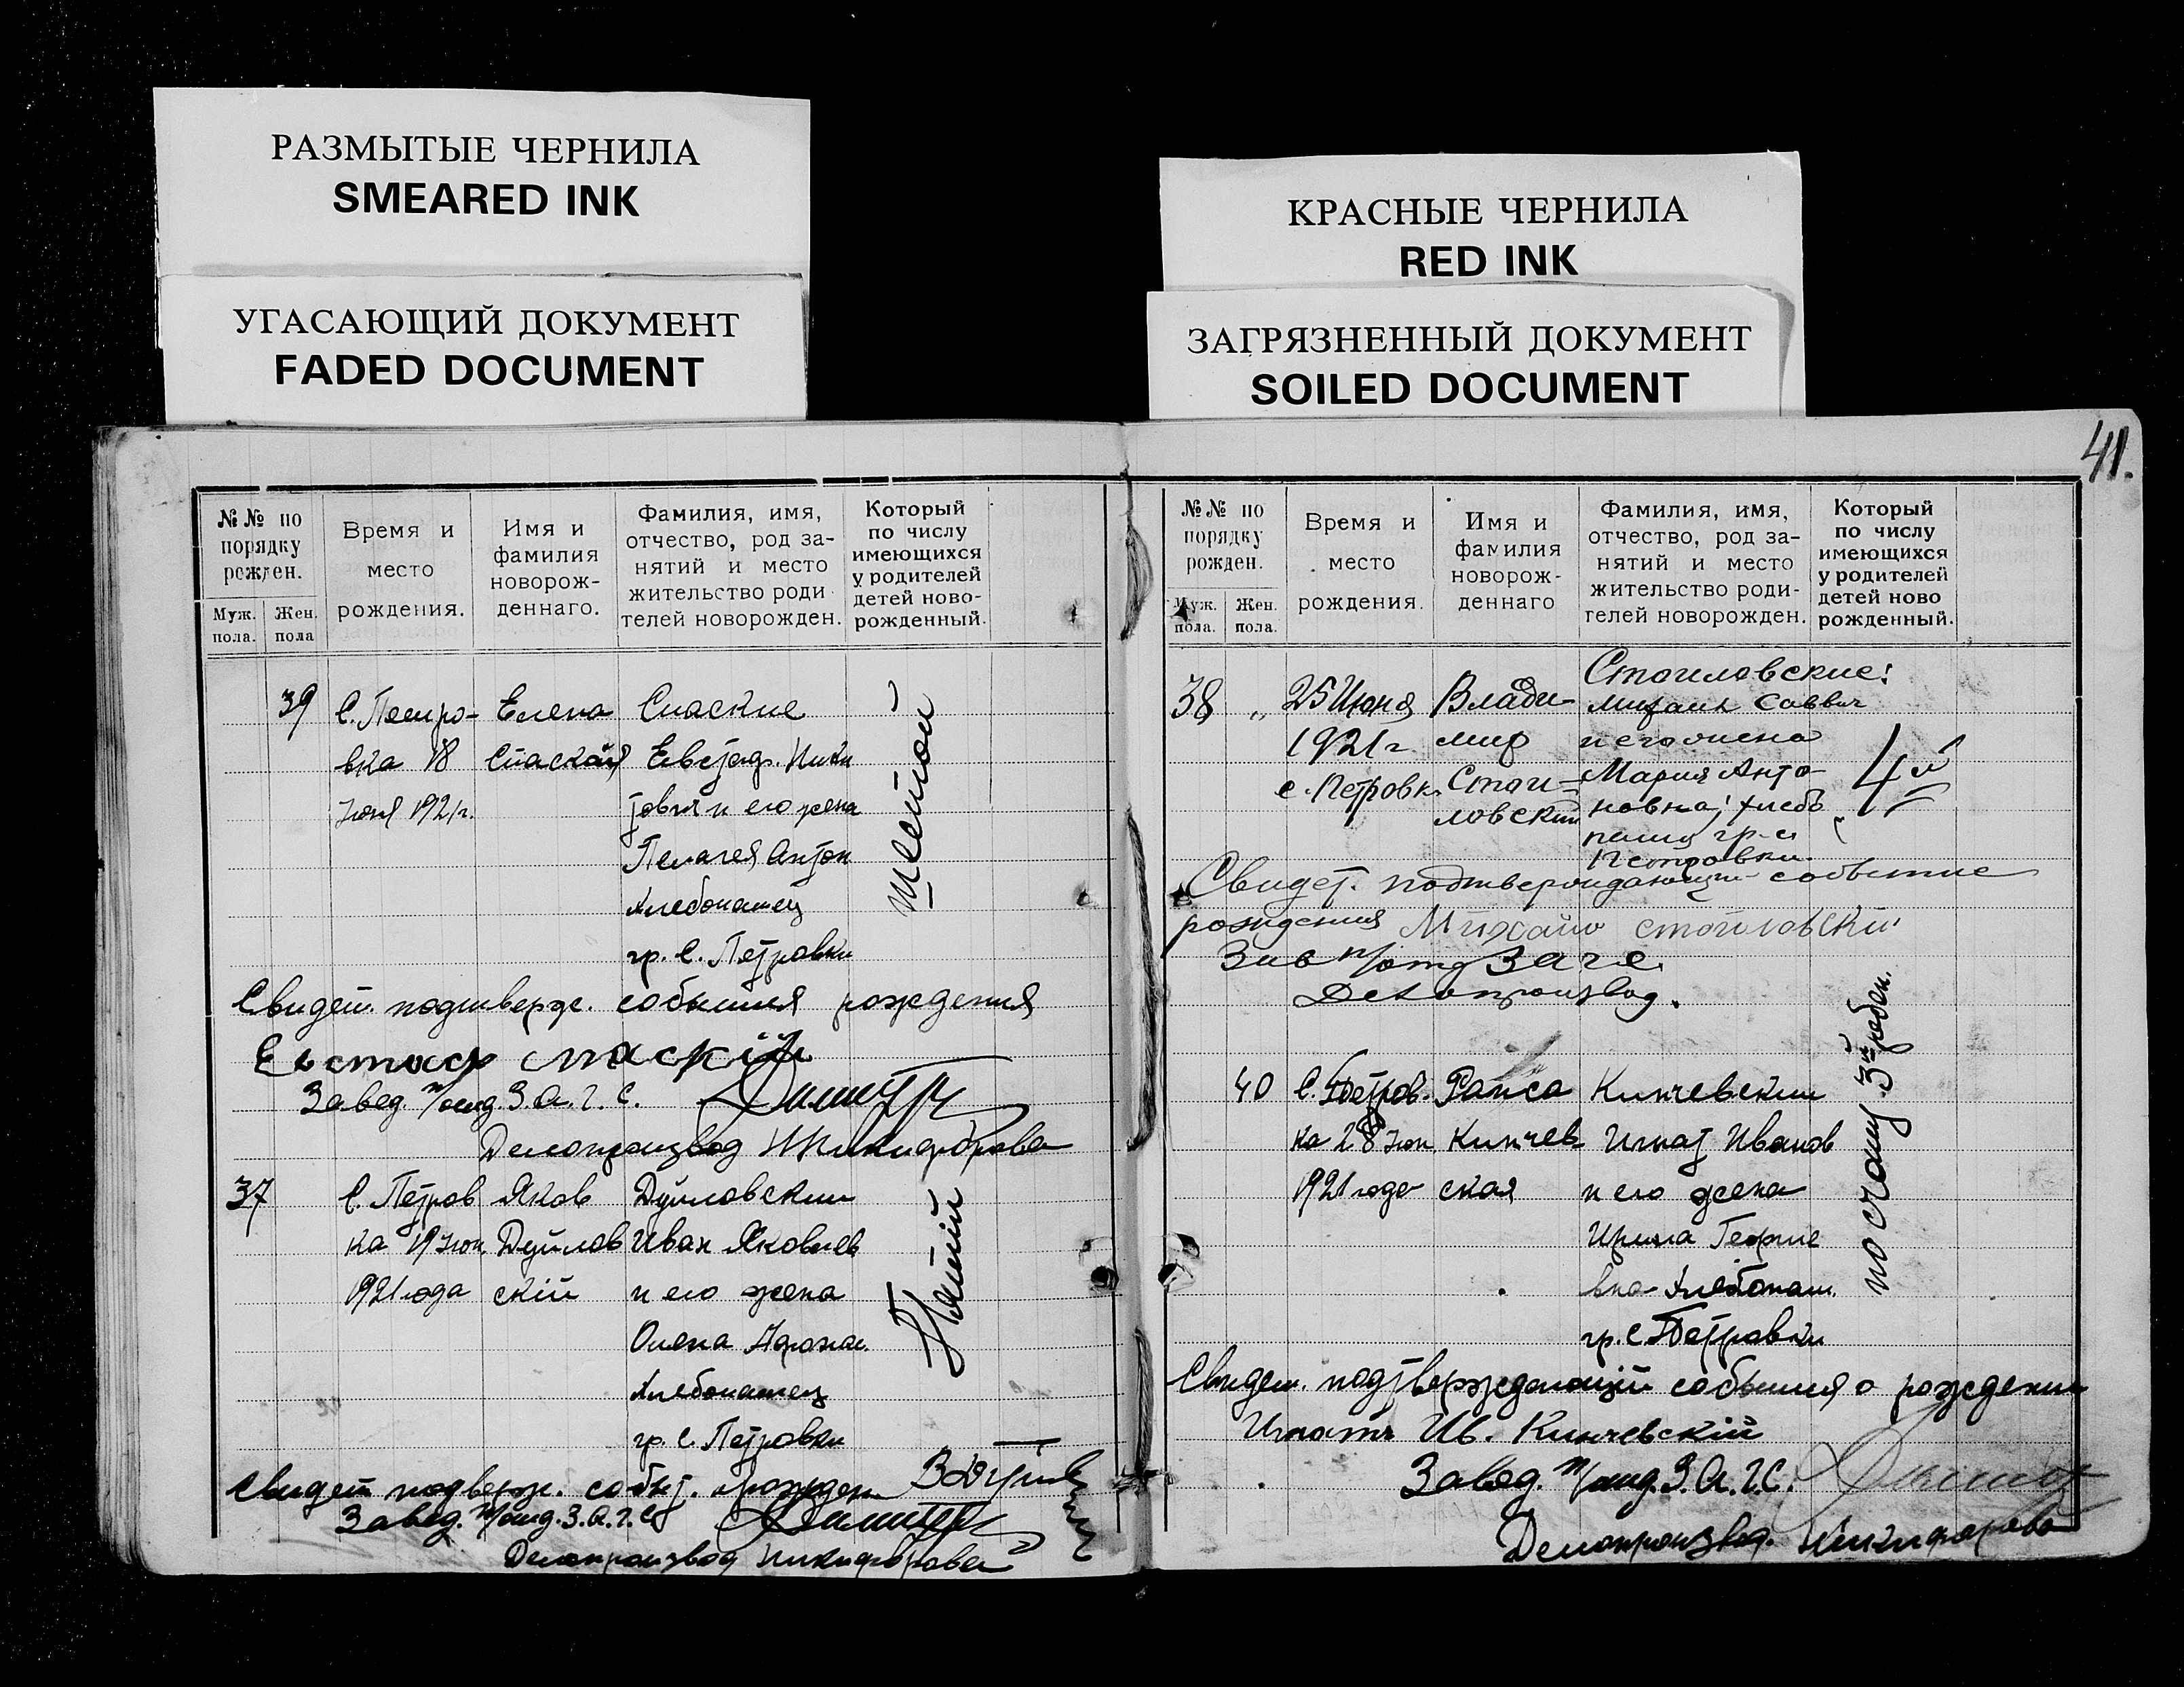 РАЗМЫТЫЕ ЧЕРНИЛА
SMEARED INK
УГАСАЮЩИЙ ДОКУМЕНТ
FADED DOCUMENT
КРАСНЫЕ ЧЕРНИЛА
RED INK
ЗАГРЯЗНЕННЫЙ ДОКУМЕНТ
SOILED DOCUMENT
41.
№№ по
порядку
рожден.
Муж.
пола.
Жен.
пола
Время и
место
рождения.
Имя и
фамилия
новорож-
деннаго.
Фамилия, имя,
отчество, род за-
нятий и место
жительство роди
телей новорожден.
Который
по числу
имеющихся
у родителей
детей ново-
рожденный.
39
С. Петро-
вка 18
Июня 1921г.
Елена
Спаская
Спаские
Евстаф. Ники
товия и его жена
Пелагея Антон
Хлебопашец
гр. С. Петровки
шестой
Свидет. подтверж. события рождения
Евстаф Спаскій
Завед. п/отд. З.А.Г.С.
Делопроизвод Никифорова
37
С. Петров
ка 19 июн.
1921 года
Яков
Дуйлов
скій
Дуйловский
Иван Яковлев
и его жена
Олена
Хлебопашец
гр. С. Петровки
Пятый
Свидет подверж. событ. рожден
Завед. п/отд. З.А.Г.С.
Делопроизвод Никифорова
№№ по
порядку
рожден.
Муж.
пола.
Жен.
пола.
Время и
место
рождения.
Имя и
фамилия
новорож-
деннаго
Фамилия, имя,
отчество, род за-
нятий и место
жительство роди-
телей новорожден.
Который
по числу
имеющихся
у родителей
детей ново
рожденный.
38 „
25 Июня
1921 г
с. Петровк.
Влади-
мир
Стои-
ловский
Стоиловские:
Михаил Саввич
и его жена
Мария Анто-
новна; хлебо
пашец гр. с.
Петровки.
4й
Свидет. подтверждающий событие
рождения Михайло Стоиловски
Зав п/отд Загс.
Делопроизвод.
40
С. Петров.
ка 28 июн.
1921 года
Раиса
Кинчев
ская
Кинчевский
Игнат Иванов
и его жена
Ирина Георгие
вна хлебопаш.
гр. С. Петровки
по счету 3й ребен.
Свидет. подтверждающий события о рождении
Игнатъ Ив. Кинчевскій
Завед. п/отд. З.А.Г.С.
Делопроизвод. Никифорова